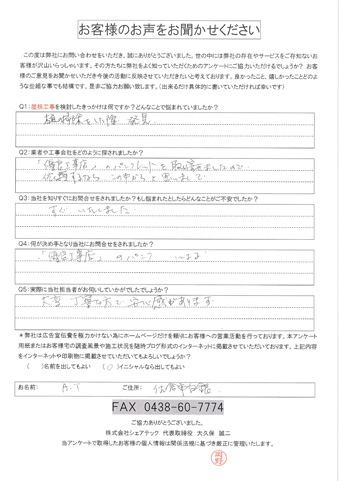 お客様のお声をお聞かせください
この度は弊社にお問い合わせをいただき、誠にありがとうございました。世の中には弊社の存在やサービスをご存知ないお
客様が沢山いらっしゃいます。その方たちに弊社をよく知っていただくためのアンケートにご協力いただけるでしょうか？ お客
様のご意見をお聞かせいただき今後の活動に反映させていただきたいと考えております。良かったこと、嬉しかったことどのよ
うな些細な事でも結構です。是非ご協力お願い致します。（出来るだけ具体的に書いていただければ幸いです）
Q1：屋根工事を検討したきっかけは何ですか？どんなことで悩まれていましたか？
の掃除をした際 発見
Q2：業者や工事会社をどのように探されましたか？
のパンフレットを取り寄せましたので
依頼するなら この中からと思いまして
Q3：当社を知りすぐにお問合せをされましたか？もし悩まれたとしたらどんなことがご不安でしたか？
すぐ いたしました
Q4：何が決め手となり当社にお問合せをされましたか？
のパンフ
Q5：実際に当社担当者がお伺いしていかがでしたでしょうか？
大変 丁寧な方で 安心感があります
＊弊社は広告宣伝費を極力かけない為にホームページだけを頼りにお客様への営業活動を行っております。本アンケート
用紙またはお客様宅の調査風景や施工状況を随時ブログ形式のインターネットに掲載させていただいております。上記内容
をインターネットや印刷物に掲載させていただいてもよろしいでしょうか？
（ ）名前を出してもよい （○）イニシャルなら出してもよい
お名前： A.T ご住所：
FAX 0438-60-7774
ご協力ありがとうございました。
株式会社シェアテック 代表取締役 大久保 誠二
当アンケートで取得したお客様の個人情報は関係法規に基づき厳正に管理いたします。